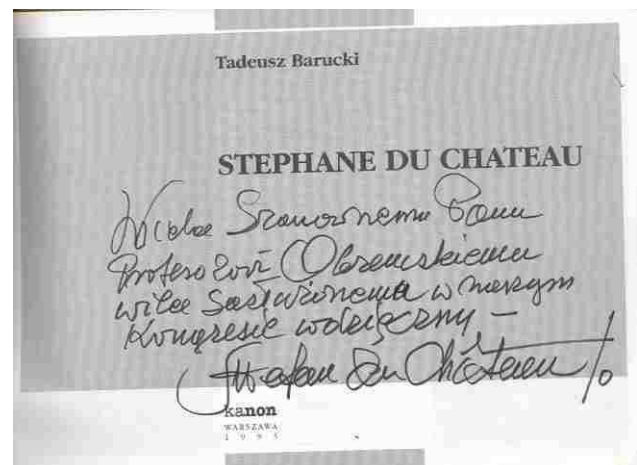 Tadeusz Barucki
STEPHANE DU CHATEAU
Wielce Szanownemu Panu
Profesorowi
wilce Zasłużonemu w naszym
Kongresie wdzięczny —
Stefan Du Château
kanon
WARSZAWA
1995